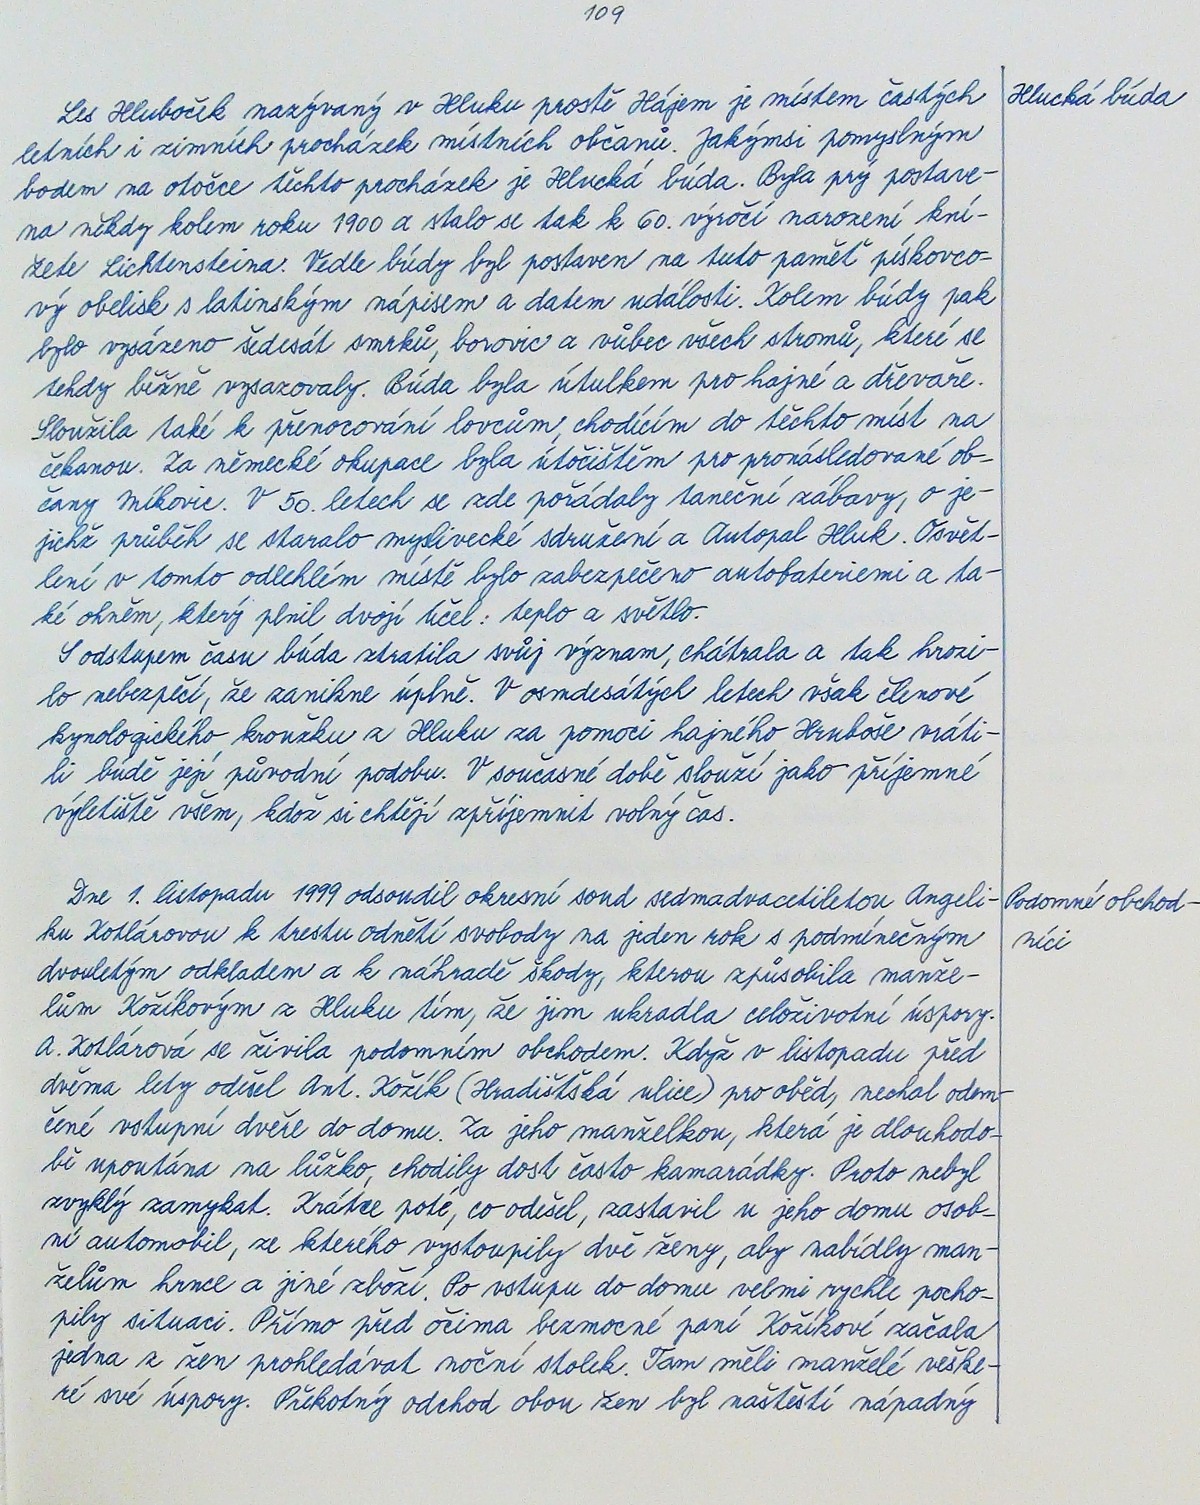 109
Les Hluboček nazývaný v Hluku prostě Hájem je místem častých
Hlucká búda
letních i zimních procházek místních občanů. Jakýmsi pomyslným
bodem na otočce těchto procházek je Hlucká búda. Byla prý postave-
na někdy kolem roku 1900 a stalo se tak k 60. výročí narození kní-
žete Lichtensteina. Vedle búdy byl postaven na tuto paměť pískovco-
vý obelisk s latinským nápisem a datem události. Kolem búdy pak
bylo vysázeno šedesát smrků, borovic a vůbec všech stromů, které se
tehdy běžně vysazovaly. Búda byla útulkem pro hajné a dřevaře.
Sloužila také k přenocování lovcům, chodícím do těchto míst na
čekanou. Za německé okupace byla útočištěm pro pronásledované ob-
čany Míkovic. V 50. letech se zde pořádaly taneční zábavy, o je-
jichž průběh se staralo myslivecké sdružení a Autopal Hluk. Osvět-
lení v tomto odlehlém místě bylo zabezpečeno autobateriemi a ta-
ké ohněm, který plnil dvojí účel: teplo a světlo.
S odstupem času búda ztratila svůj význam, chátrala a tak hrozi-
lo nebezpečí, že zanikne úplně. V osmdesátých letech však členové
kynologického kroužku z Hluku za pomoci hajného Hruboše vráti-
li búdě její původní podobu. V současné době slouží jako příjemné
výletiště všem, kdož si chtějí zpříjemnit volný čas.
Dne 1. listopadu 1999 odsoudil okresní soud sedmadvacetiletou Angeli-
Podomné obchod-
níci
ku Kotlárovou k trestu odnětí svobody na jeden rok s podmínečným
dvouletým odkladem a k náhradě škody, kterou způsobila manže-
lům Kožíkovým z Hluku tím, že jim ukradla celoživotní úspory.
A. Kotlárová se živila podomním obchodem. Když v listopadu před
dvěma lety odešel Ant. Kožík (Hradištská ulice) pro oběd, nechal odem-
čené vstupní dveře do domu. Za jeho manželkou, která je dlouhodo-
bě upoutána na lůžko, chodily dost často kamarádky. Proto nebyl
zvyklý zamykat. Krátce poté, co odešel, zastavil u jeho domu osob-
ní automobil, ze kterého vystoupily dvě ženy, aby nabídly man-
želům hrnce a jiné zboží. Po vstupu do domu velmi rychle pocho-
pily situaci. Přímo před očima bezmocné paní Kožíkové začala
jedna z žen prohledávat noční stolek. Tam měli manželé veške-
ré své úspory. Překotný odchod obou žen byl naštěstí nápadný